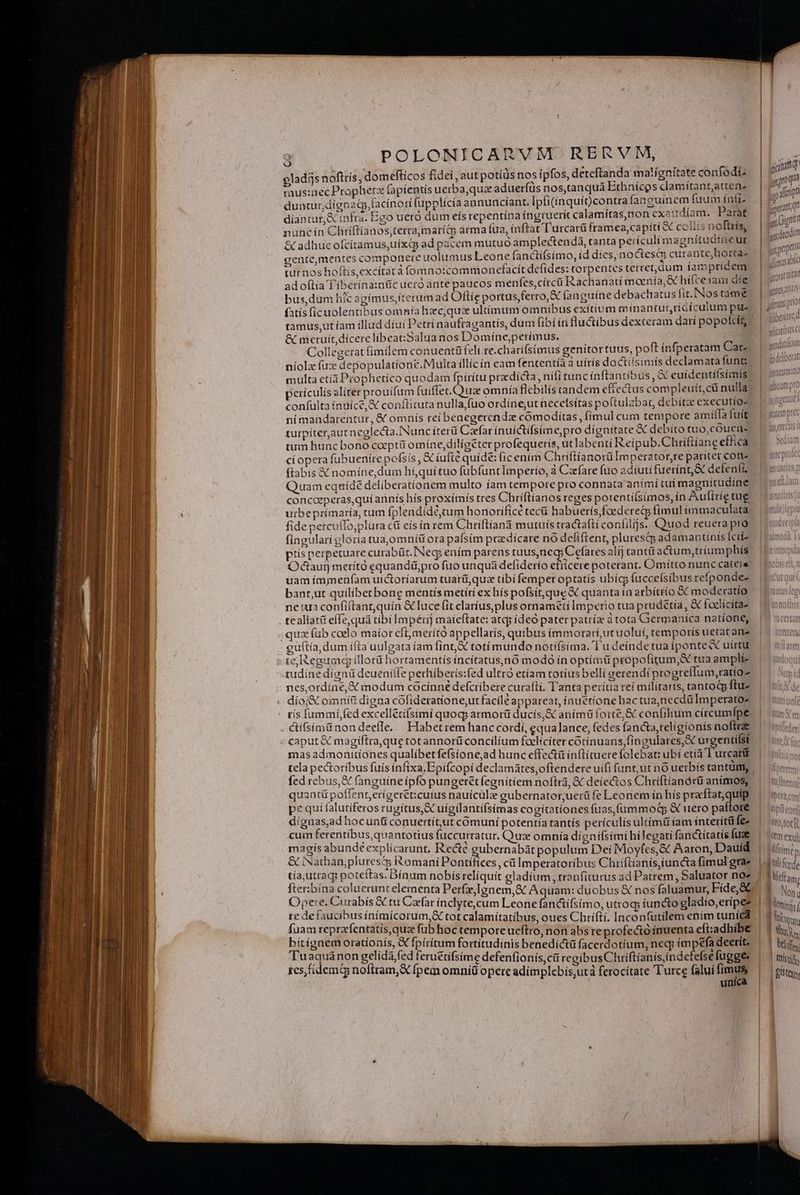 POLONICARVM RERVM,
gladijs nostris, domesticos fidei, aut potiùs nos ipsos, detestanda malignitate confodi-
mus: nec Prophetæ sapientis uerba, quæ aduersus nos, tanquã Ethnicos clamitant, atten-
duntur, dignaq;, facinori supplicia annunciant. Ipsi (inquit) contra sanguinem suum insi-
diantur, & infra. Ego uerò dum eis repentina ingruerit calamitas, non exaudiam. Parat
nunc in Christianos, terra, mariq; arma sua, instat Turcarũ framea, capiti & collis nostris,
& adhuc oscitamus, uixq; ad pacem mutuò amplectendã, tanta periculi magnitudine ur
gente, mentes componere uolumus Leone sanctissimo, id dies, noctesq; curante, horta-
tur nos hostis, excitat à somno: commonefacit desides: torpentes terret, dum iampridem
ad ostia Tiberina: nũc uerò ante paucos menses, circũ Rachanati mœnia, & hisce iam die
bus, dum hîc agimus, iterum ad Ostie portus, ferro, & sanguine debachatus sit. Nos tamẽ
fatis ficuolentibus omnia hæc, quæ ultimum omnibus exitium minantur, ridiculum pu-
tamus, ut iam illud diui Petri naufragantis, dum sibi in fluctibus dexteram dari poposcit,
& meruit, dicere libeat: Salua nos Domine, perimus.
Collegerat similem conuentũ feli. re. charissimus genitor tuus, post insperatam Car-
niolæ suæ depopulationẽ. Multa illic in eam sententiã à uiris doctissimis declamata sunt:
multa etiã Prophetico quodam spiritu prædicta, nisi tunc instantibus, & euidentissimis
periculis aliter prouisum fuisset. Quæ omnia flebilis tandem effectus compleuit, cũ nulla
consulta inuicẽ, & constituta nulla, suo ordine, ut necessitas postulabat, debitæ executio-
ni mandarentur, & omnis rei benegerendæ cõmoditas, simul cum tempore amissa fuit
turpiter, aut neglecta. Nunc iterũ Cæsar inuictissime, pro dignitate & debito tuo, couen-
tum hunc bono cœptũ omine, diligẽter prosequeris, ut labenti Reipub. Christiane effica
ci opera subuenire possis, & iustè quidẽ: sic enim Christianorũ Imperator, re pariter con-
stabis & nomine, dum hi, qui tuo subsunt Imperio, à Cæsare suo adiuti fuerint, & defensi.
Quam equidẽ deliberationem multo iam tempore pro connata animi tui magnitudine
concœperas, qui annis his proximis tres Christianos reges potentissimos, in Austrie tue
urbe primaria, tum splendidè, tum honorificè tecũ habueris, fœdereq; simul immaculata
fide percusso, plura cũ eis in rem Christianã mutuis tractasti consilijs. Quod reuera pro
singulari gloria tua, omniũ ora passim prædicare nõ desistent, pluresq; adamantinis scri-
ptis perpetuare curabũt. Neq; enim parens tuus, neq; Cesares alij tantũ actum, triumphis
Octauij meritò equandũ, pro suo unquã desiderio efficere poterant. Omitto nunc cateris
uam immensam uictoriarum tuarũ, quæ tibi semper optatis ubiq; successibus responde-
bant, ut quilibet bone mentis metiri ex his possit, que & quanta in arbitrio & moderatio
ne tua consistant, quin & luce sit clarius, plus ornamẽti Imperio tua prudẽtia, & fœlicita-
te allatũ esse, quã tibi Imperij maiestate: atq; ideò pater patriæ à tota Germanica natione,
quæ sub cœlo maior est, meritò appellaris, quibus immorari, ut uolui, temporis uetat an-
gustia, dum ista uulgata iam sint, & toti mundo notissima. Tu deinde tua sponte & uirtu
te, Regumq; illorũ hortamentis incitatus, nõ modò in optimũ propositum, & tua ampli-
tudine dignũ deuenisse perhiberis: sed ultrò etiam totius belli gerendi progressum, ratio-
nes, ordinẽ, & modum cõcinnè describere curasti. Tanta periria rei militaris, tantoq; stu-
dio, & omniũ digna cõsideratione, ut facilè appareat, inuẽtione hac tua, necdũ Imperato-
ris summi, sed excellẽtissimi quoq; armorũ ducis, & animũ fortè, & consilium circumspe
ctissimũ non deesse. Habet rem hanc cordi, equa lance, sedes sancta, religionis nostræ
caput & magistra, que tot annorũ concilium fœliciter cõtinuans, singulares, & urgentissi
mas admonitiones qualibet sessione, ad hunc effectũ instituere solebat: ubi etiã Turcarũ
tela pectoribus suis infixa, Episcopi declamãtes, ostendere uisi sunt, ut nõ uerbis tantùm,
sed rebus, & sanguine ipso pungerẽt segnitiem nostrã, & deiectos Christianorũ animos,
quantũ possent, erigerẽt: cuius nauiculæ gubernator, uerũ se Leonem in his præstat, quip
pe qui salutiferos rugitus, & uigilantissimas cogitationes suas, summoq; & uero pastore
dignas, ad hoc unũ conuertit, ut cõmuni potentia tantis periculis ultimũ iam interitũ se-
cum ferentibus, quantotius succurratur. Quæ omnia dignissimi hi legati sanctitatis suæ
magis abundè explicarunt. Rectè gubernabãt populum Dei Moyses, & Aaron, Dauid
& Nathan, pluresq; Romani Pontifices, cũ Imperatoribus Christianis, iuncta simul gra-
tia, utraq; potestas. Binum nobis reliquit gladium, transiturus ad Patrem, Saluator no-
ster: bina coluerunt elementa Perse, Ignem, & Aquam: duobus & nos saluamur, Fide, &
Opere. Curabis & tu Cæsar inclyte, cum Leone sanctissimo, utroq; iuncto gladio, eripe-
re de faucibus inimicorum, & tot calamitatibus, oues Christi. Inconsutilem enim tunicã
suam repræsentatis, quæ sub hoc tempore uestro, non abs re profectò inuenta est: adhibe
bit ignem orationis, & spiritum fortitudinis benedictũ sacerdotium, neq; impesa deerit.
Tu aquã non gelidã, sed feruẽtissime defensionis, cũ regibus Christianis, indefesse sugge-
res, fidemq; nostram, & spem omniũ opere adimplebis, ut à ferocitate Turce salui simus,
unica